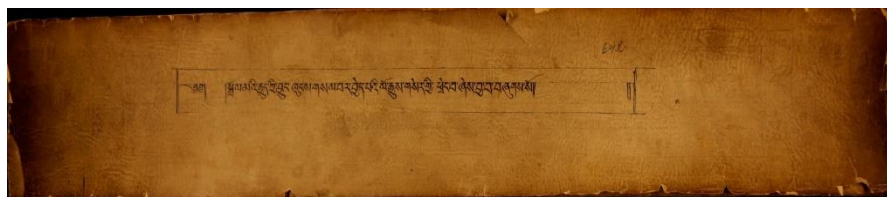 ༄༅། །སྒྲོལ་མའི་རྒྱུད་ཀྱི་བྱུང་ཁུངས་གསལ་བར་བྱེད་པའི་ལོ་རྒྱུས་གསེར་གྱི་ཕྲེང་བ་ཞེས་བྱ་བ་བཞུགས་སོ།།